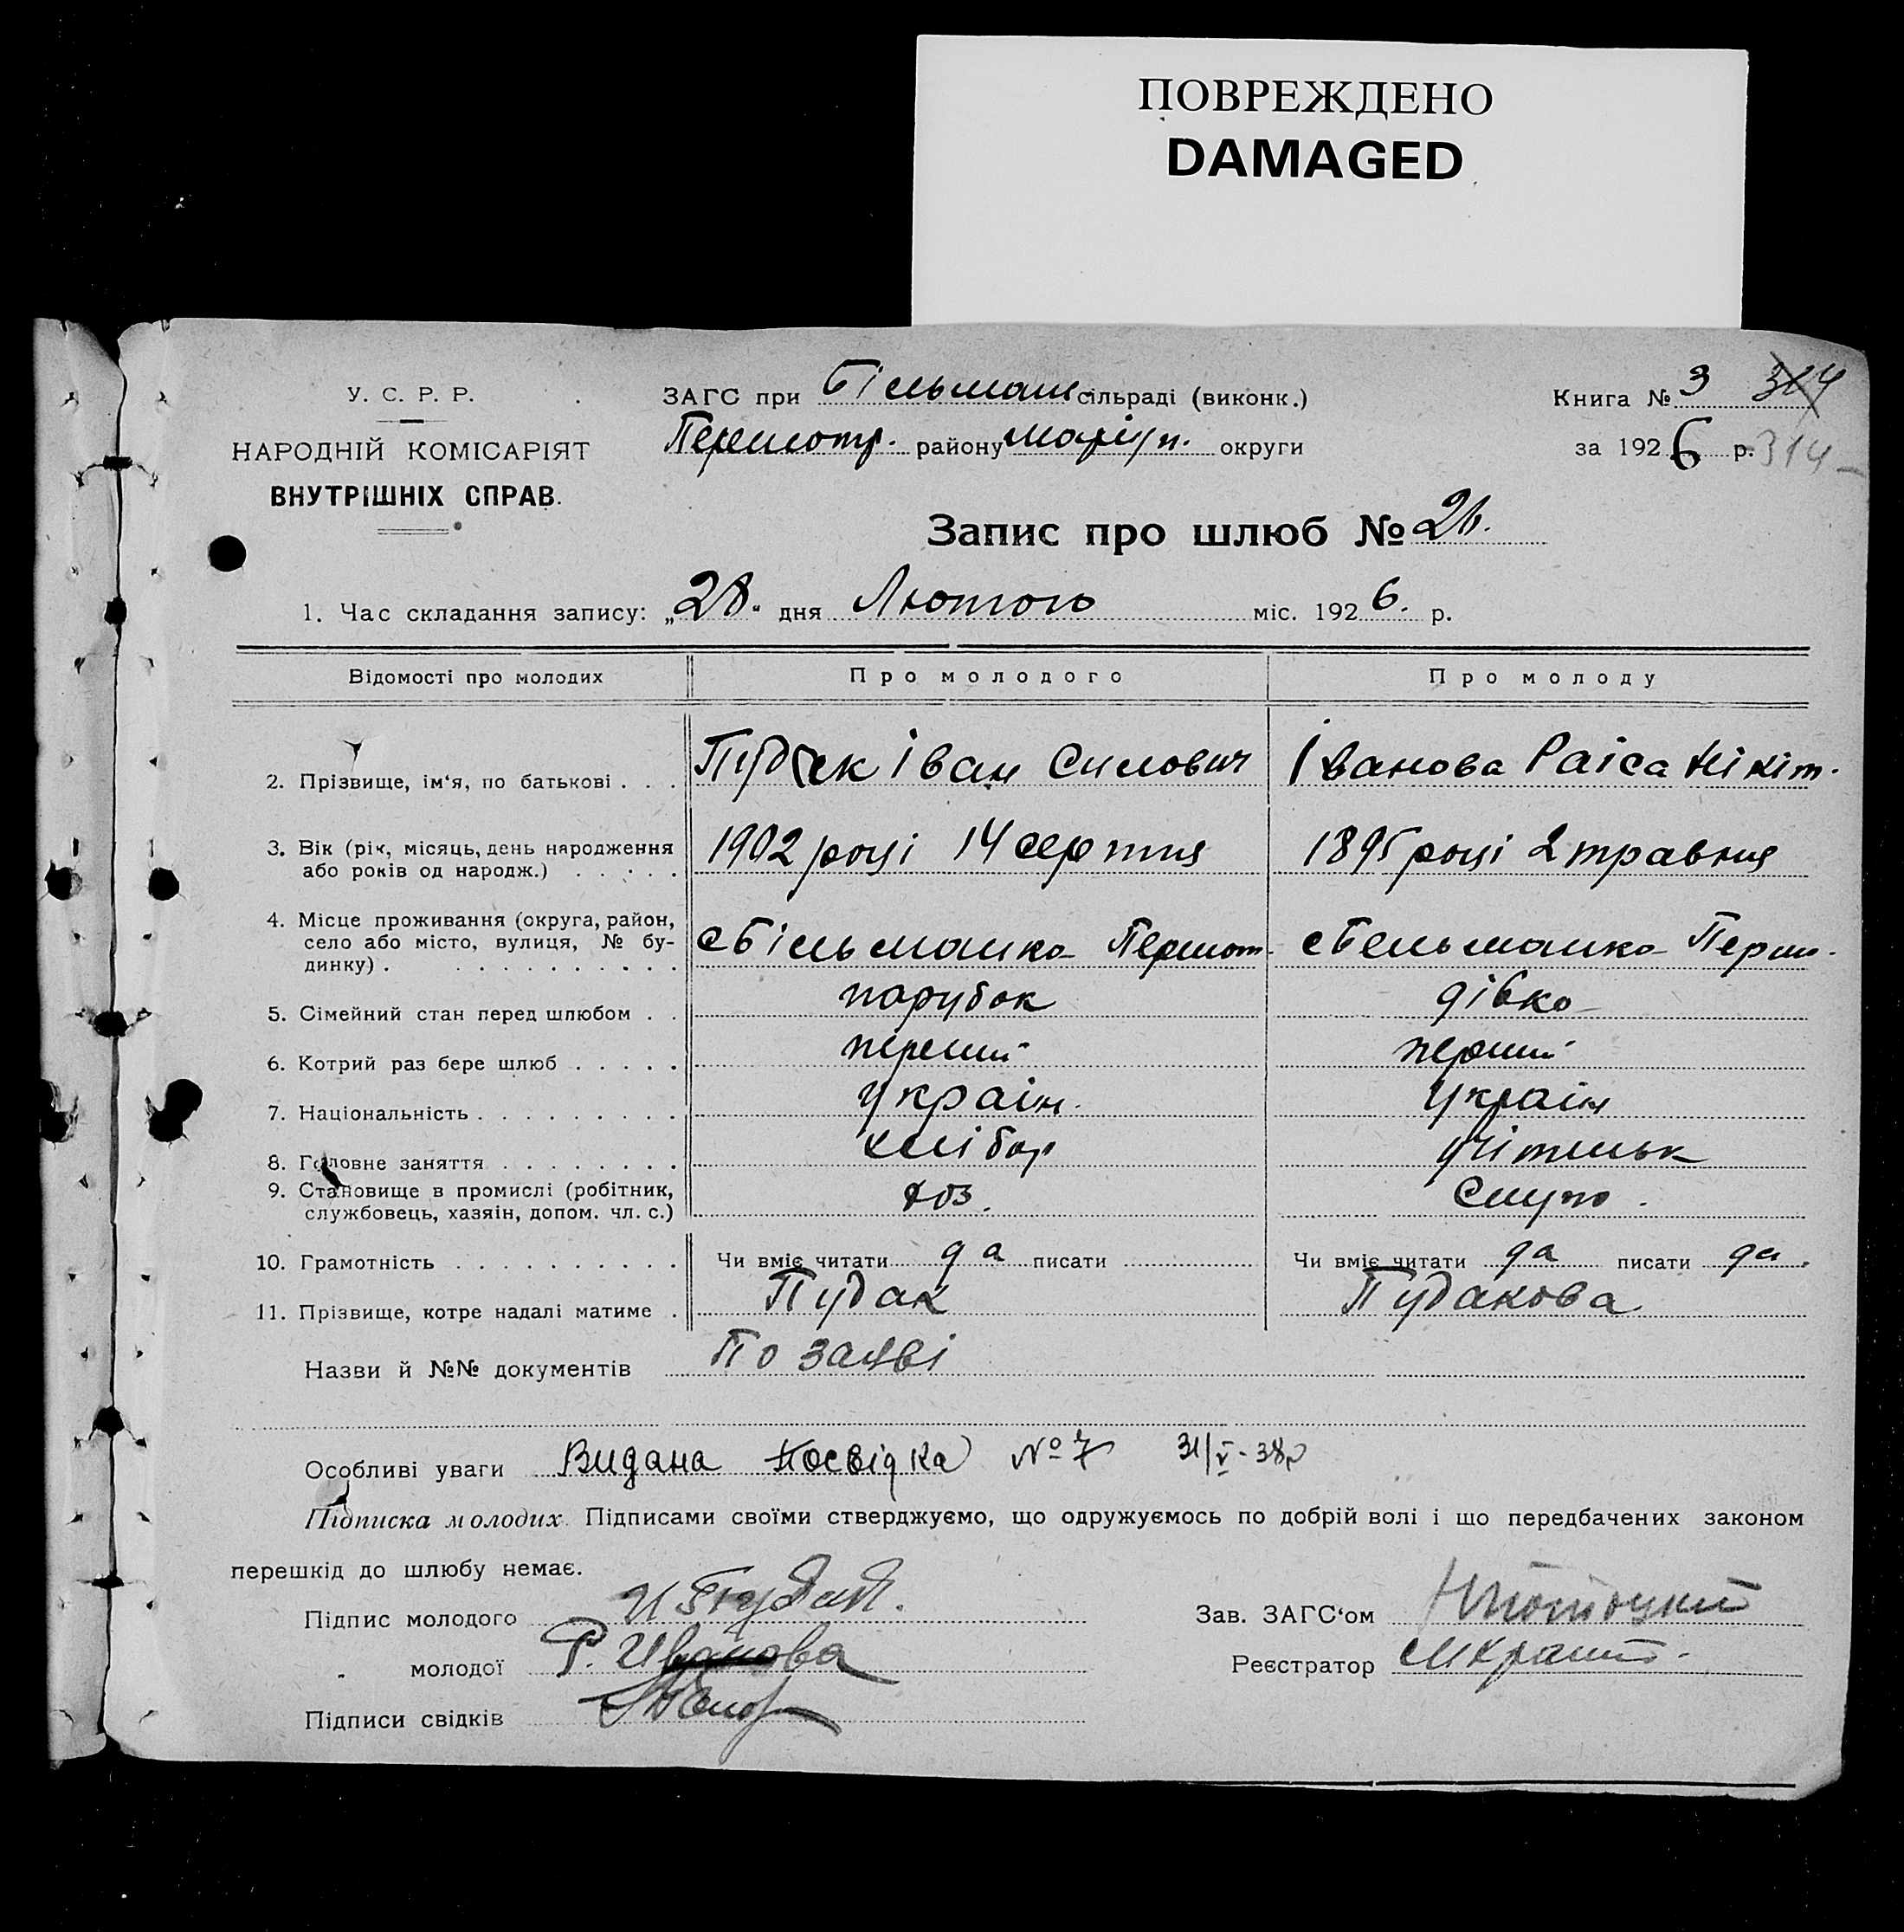 ПОВРЕЖДЕНО
DAMAGED
У. С. Р. Р.
НАРОДНІЙ КОМІСАРІЯТ
ВНУТРІШНІХ СПРАВ.
ЗАГС при Більмаш сільраді (виконк.)
Першотр. району Маріуп. округи
Книга № 3 314
за 1926 р. 314
Запис про шлюб № 26.
1. Час складання запису: „28" дня Лютого міс. 1926. р.
Відомості про молодих Про молодого Про молоду
2. Прізвище, ім'я, по батькові . . . Пудак Іван Силович Іванова Раіса Нікіт.
3. Вік (рік, місяць, день народження
або років од народж.) . . . . . 1902 році 14 серпня 1895 році 2 травня
4. Місце проживання (округа, район,
село або місто, вулиця, № бу-
динку) . . . . . . . . . . . с Більманка Першот. с Бельманка Перш.
5. Сімейний стан перед шлюбом . . парубок дівка
6. Котрий раз бере шлюб . . . . . перший перший
7. Національність . . . . . . . . . украін. украін
8. Головне заняття . . . . . . . . хлібор учітельк
9. Становище в промислі (робітник,
службовець, хазяін, допом. чл. с.) хоз. Служ.
10. Грамотність . . . . . . . . . . Чи вміє читати да писати Чи вміє читати да писати да.
11. Прізвище, котре надалі матиме . Пудак Пудакова
Назви й №№ документів По заяві
Особливі уваги Видана Посвідка № 7 31/V-38р
Підписка молодих. Підписами своїми стверджуємо, що одружуємось по добрій волі і що передбачених законом
перешкід до шлюбу немає.
Підпис молодого И Пудак.
„ молодої Р. Иванова
Підписи свідків
Зав. ЗАГС'ом
Реєстратор